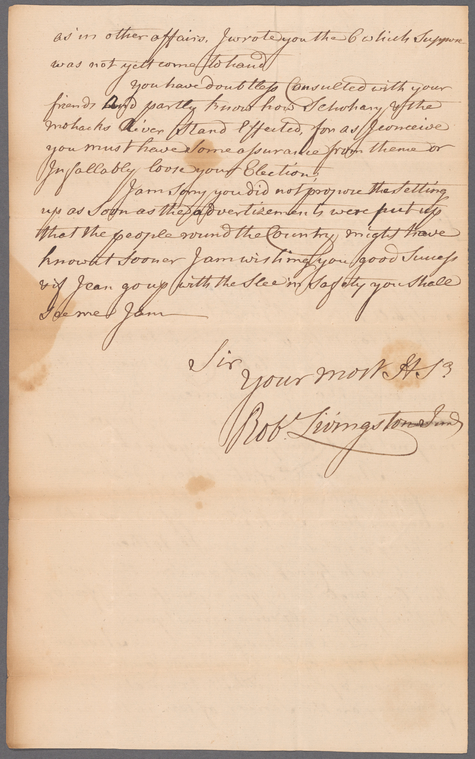 as in other affairs. I wrote you the 6 which Suppose
was not yett come to hand
You have doubtless Consulted with your
friends and partly know how Schohary & the
mohacks River Stand Effected, for as I conceive
you must have Some assurance from theme or
Infallably loose your Election,
I am Sorry you did not propose the Setting
up as Soon as the advertizements were put up
that the people round the Country might have
know it Sooner I am wishing you good Success
& if I can go up with the Slee in Safety you Shall
See me I am
Sir
Your most H S
Robt. Livingston Junr